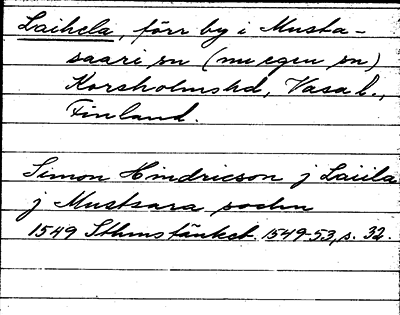 Laihela, förr by i Musta-
saari sn (nu egen sn)
Korsholms hd, Vasa l.,
Finland.
Simon Hindricson j Laiila
j Mustsara sochn
1549 Sthms tänkeb. 1549-53, s. 32.